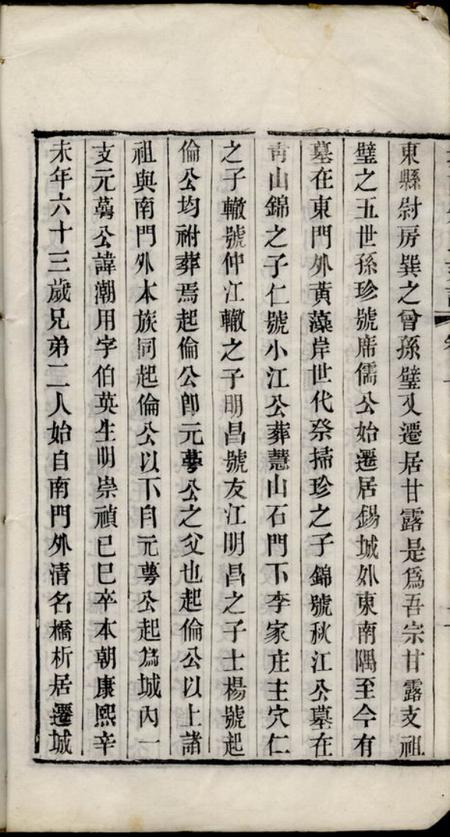 東縣尉房巽之曾孫璧又遷居甘露是爲吾宗甘露支祖
璧之五世孫珍號席儒公始遷居錫城外東南隅至今有
墓在東門外黃藻岸世代祭掃珍之子錦號秋江公墓在
青山錦之子仁號小江公葬慧山石門下李家庄主穴仁
之子轍號仲江轍之子明昌號友江明昌之子士楊號起
倫公均祔葬焉起倫公卽元蕚公之父也起倫公以上諸
祖與南門外本族同起倫公以下自元蕚公起爲城內一
支元蕚公諱潮用字伯英生明崇禎已巳卒本朝康熙辛
未年六十三歲兄弟二人始自南門外清名橋析居遷城